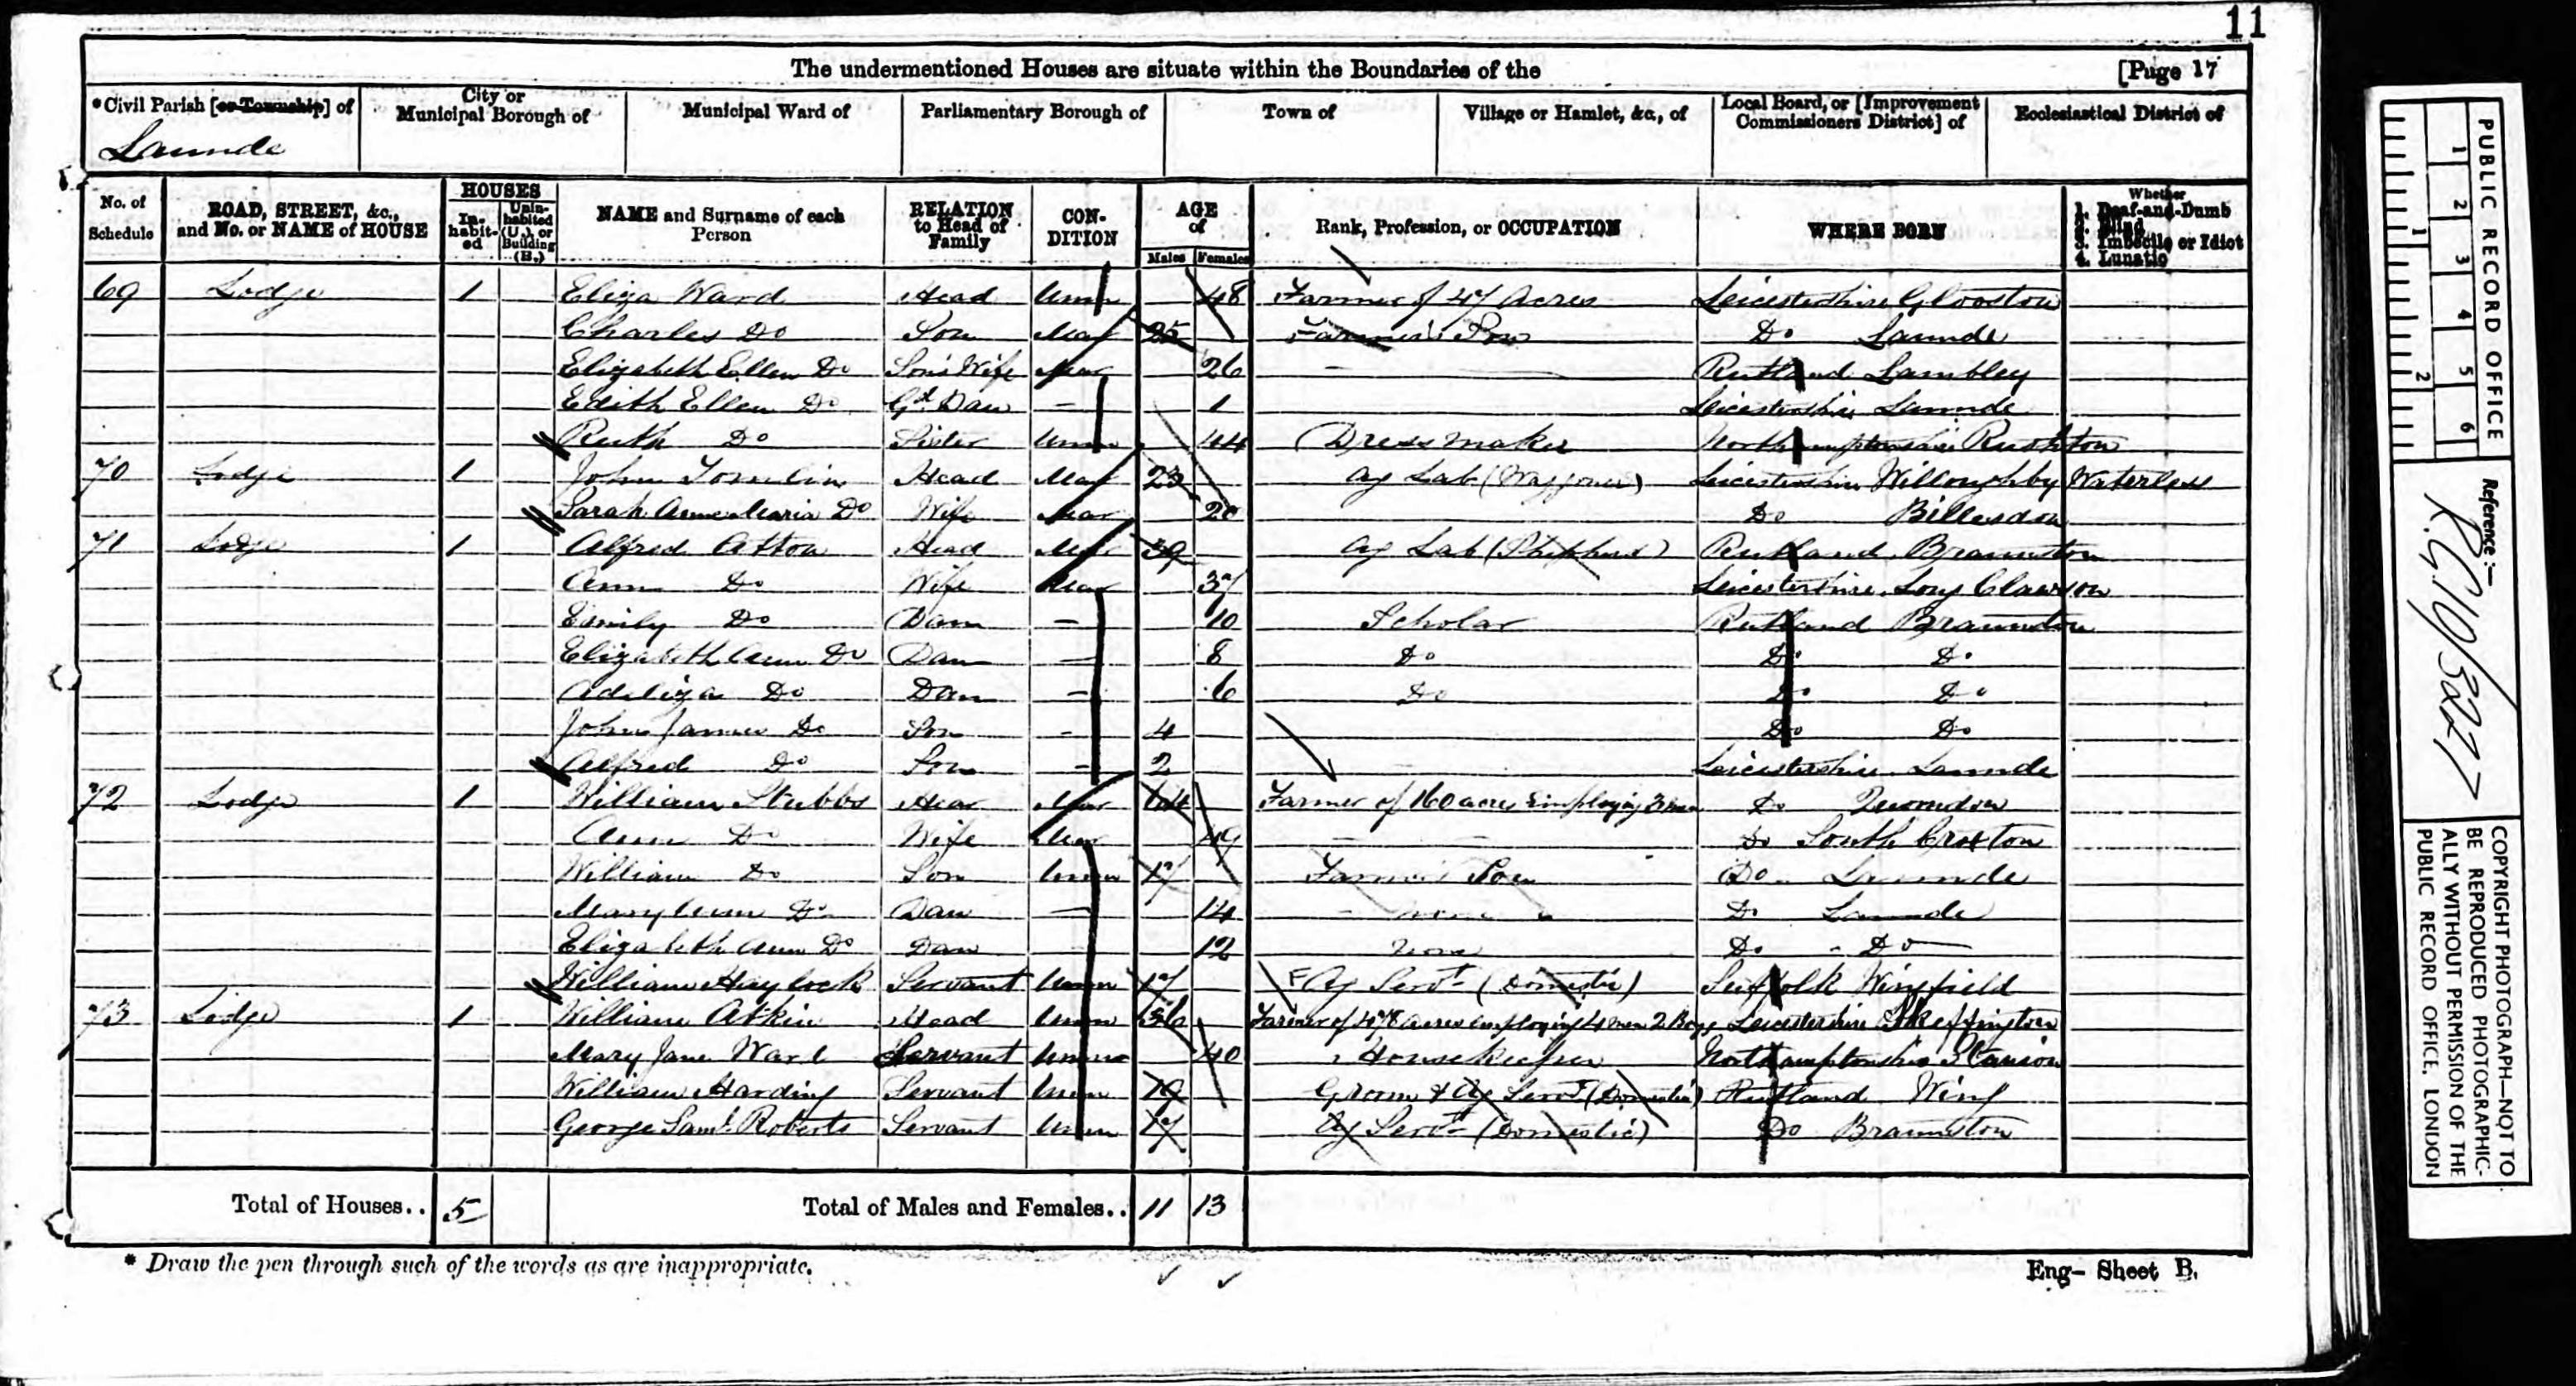 11
The undermentioned Houses are situate within the Boundaries of the [Page 17
*Civil Parish [or Township] of
City or Municipal Borough of
Municipal Ward of
Parliamentary Borough of
Town of
Village or Hamlet, &c., of
Local Board, or [Improvement Commissioners District] of
Ecclesiastical District of
Launde
No. of Schedule
ROAD, STREET, &c., and No. or NAME of HOUSE
HOUSES
In-habit-ed
Unin-habited (U.), or Building (B.)
NAME and Surname of each Person
RELATION to Head of Family
CON-DITION
AGE of
Males Females
Rank, Profession, or OCCUPATION
WHERE BORN
Whether
1. Deaf-and-Dumb
2. Blind
3. Imbecile or Idiot
4. Lunatic
69 Lodge 1 Eliza Ward Head Unm 48 Farmer of 47 Acres Leicestershire Glooston
Charles Do Son Mar 25 Farmer's Son Do Launde
Elizabeth Ellen Do Son's Wife Mar 26 Rutland Lambley
Edith Ellen Do Gd Daw 1 Leicestershire Launde
Ruth Do Sister Unm 44 Dressmaker Northamptonshire Rushton
70 Lodge 1 John Tomlin Head Mar 23 Ag Lab (Waggoner) Leicestershire Willoughby Waterless
Sarah Anne Maria Do Wife Mar 20 Do Billesdon
71 Lodge 1 Alfred Atton Head Mar 39 Ag Lab (Shepherd) Rutland Braunston
Ann Do Wife Mar 37 Leicestershire Long Clawson
Emily Do Daw 10 Scholar Rutland Braunston
Elizabeth Ann Do Daw 8 Do Do Do
Adeliza Do Daw 6 Do Do Do
John James Do Son 4 Do Do
Alfred Do Son 2 Leicestershire Launde
72 Lodge 1 William Stubbs Head Mar 64 Farmer of 160 acres Employing 3 men Do Quorndon
Ann Do Wife Mar 49 Do South Croxton
William Do Son Unm 17 Farmer's Son Do Launde
Mary Ann Do Daw 14 Do Launde
Elizabeth Ann Do Daw 12 None Do Do
William Haylock Servant Unm 17 Ag Servt (Domestic) Suffolk Wingfield
73 Lodge 1 William Atkin Head Unm 36 Farmer of 478 Acres employing 4 men 2 Boys Leicestershire Skeffington
Mary Jane Ward Servant Unm 40 Housekeeper Northamptonshire Stanion
William Harding Servant Unm 19 Groom & Ag Servt (Domestic) Rutland Wing
George Saml. Roberts Servant Unm 17 Ag Servt (Domestic) Do Braunston
Total of Houses.. 5 Total of Males and Females.. 11 13
* Draw the pen through such of the words as are inappropriate.
Eng- Sheet B.
PUBLIC RECORD OFFICE
1 2 3 4 5 6
1 2
Reference:—
R.G. 10/3227
COPYRIGHT PHOTOGRAPH—NOT TO BE REPRODUCED PHOTOGRAPHIC-ALLY WITHOUT PERMISSION OF THE PUBLIC RECORD OFFICE, LONDON